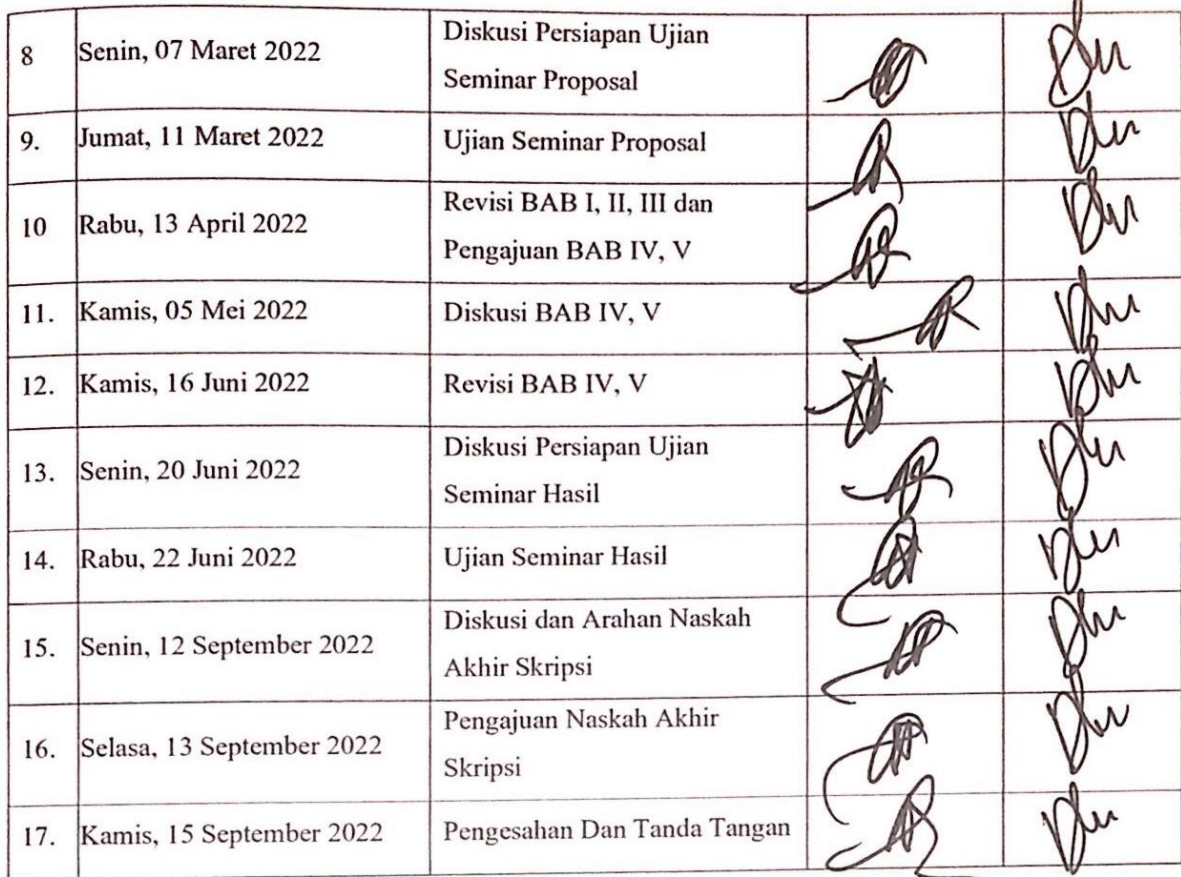 8 Senin, 07 Maret 2022 Diskusi Persiapan Ujian
Seminar Proposal
9. Jumat, 11 Maret 2022 Ujian Seminar Proposal
10 Rabu, 13 April 2022 Revisi BAB I, II, III dan
Pengajuan BAB IV, V
11. Kamis, 05 Mei 2022 Diskusi BAB IV, V
12. Kamis, 16 Juni 2022 Revisi BAB IV, V
13. Senin, 20 Juni 2022 Diskusi Persiapan Ujian
Seminar Hasil
14. Rabu, 22 Juni 2022 Ujian Seminar Hasil
15. Senin, 12 September 2022 Diskusi dan Arahan Naskah
Akhir Skripsi
16. Selasa, 13 September 2022 Pengajuan Naskah Akhir
Skripsi
17. Kamis, 15 September 2022 Pengesahan Dan Tanda Tangan